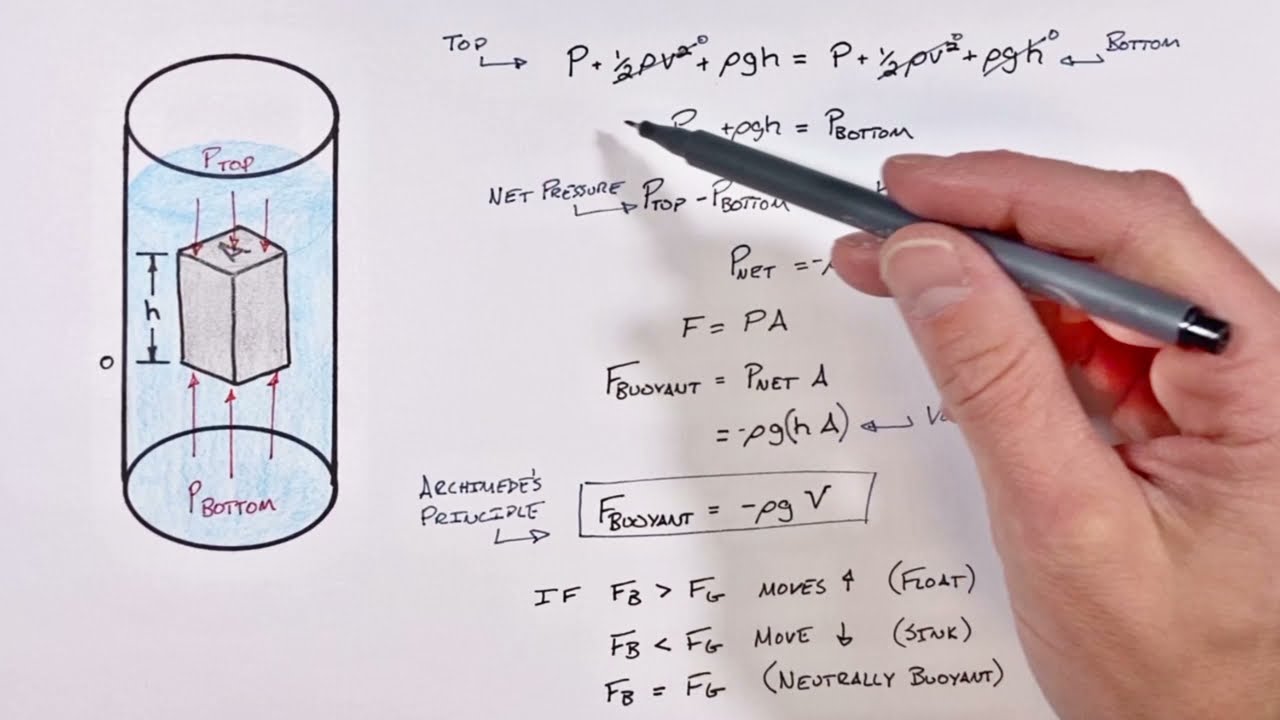 TOP
P + ½ρv²⁰ + ρgh = P + ½ρv²⁰ + ρgh⁰
BOTTOM
P +ρgh = P_BOTTOM
NET PRESSURE
P_TOP - P_BOTTOM
P_NET = -
F = PA
F_BUOYANT = P_NET A
= -ρg(h A)
ARCHIMEDE'S
PRINCIPLE
F_BUOYANT = -ρg V
IF F_B > F_G MOVES ↑ (FLOAT)
F_B < F_G MOVE ↓ (SINK)
F_B = F_G (NEUTRALLY BUOYANT)
P_TOP
A
h
O
P_BOTTOM